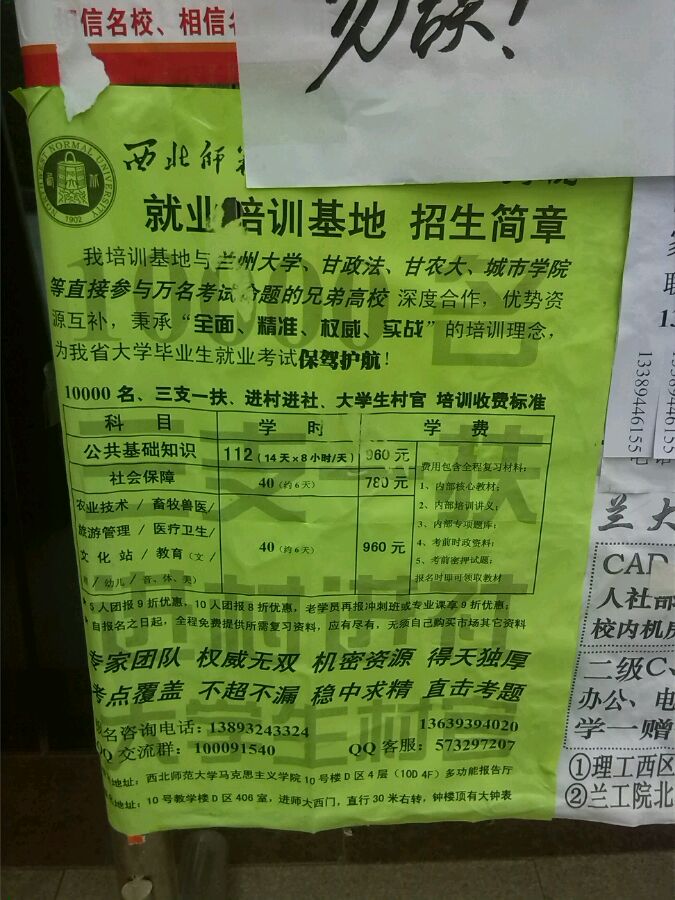 相信名校、相信名
勿误！
NORTHWEST NORMAL UNIVERSITY
1902
西北师
就业培训基地 招生简章
我培训基地与兰州大学、甘政法、甘农大、城市学院
等直接参与万名考试命题的兄弟高校 深度合作，优势资
源互补，秉承“全面、精准、权威、实战”的培训理念，
为我省大学毕业生就业考试保驾护航！
10000 名
三支一扶
进村进社
大学生村官
10000 名、三支一扶、进村进社、大学生村官 培训收费标准
科 目 学 时 学 费
公共基础知识 112（14 天×8 小时/天） 960 元
社会保障 40（约 6 天） 780 元
农业技术 / 畜牧兽医/
旅游管理 / 医疗卫生/
文 化 站 / 教育（文/
/ 幼儿 / 音、体、美）
40（约 6 天） 960 元
费用包含全程复习材料：
1、内部核心教材；
2、内部培训讲义；
3、内部专项题库；
4、考前时政资料；
5、考前密押试题；
报名时即可领取教材
5 人团报 9 折优惠，10 人团报 8 折优惠，老学员再报冲刺班或专业课享 9 折优惠；
自报名之日起，全程免费提供所需复习资料，应有尽有，无须自己购买市场其它资料
专家团队 权威无双 机密资源 得天独厚
考点覆盖 不超不漏 稳中求精 直击考题
报名咨询电话：13893243324 13639394020
QQ 交流群：100091540 QQ 客服：573297207
地址：西北师范大学马克思主义学院 10 号楼 D 区 4 层（10D 4F）多功能报告厅
地址：10 号教学楼 D 区 406 室，进师大西门，直行 30 米右转，钟楼顶有大钟表
联
13
13389446155
13389446155
兰大
CAD
人社部
校内机房
二级C、
办公、电
学一赠
①理工西区
②兰工院北